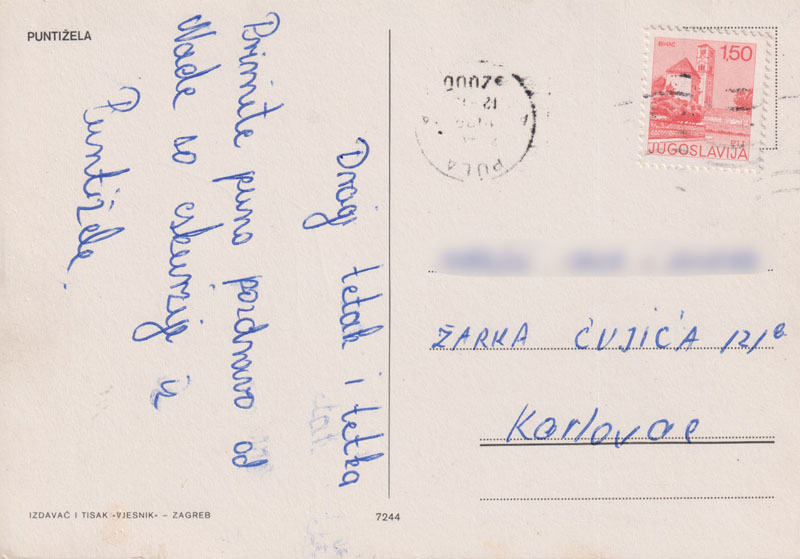 PUNTIŽELA
Dragi tetak i tetka
Primite puno pozdravo od
Nade so eskurzije iz
Puntižele.
BIHAĆ
1,50
JUGOSLAVIJA
PULA
ŽARKA ĆUJIĆA 12/B
Karlovac
IZDAVAČ I TISAK »VJESNIK« – ZAGREB
7244